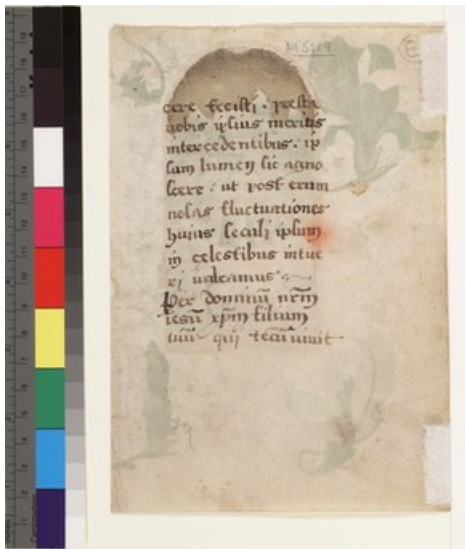 MS 119
cere fecisti . presta
nobis ipsius meritis
intercedentibus . ip
sum lumen sic agno
scere : ut post erum
nosas fluctuationes
huius seculi ipsum
in celestibus intue
ri ualeamus
Per dominū nrm
iesū xpm filium
tuū qui tecū uiuit